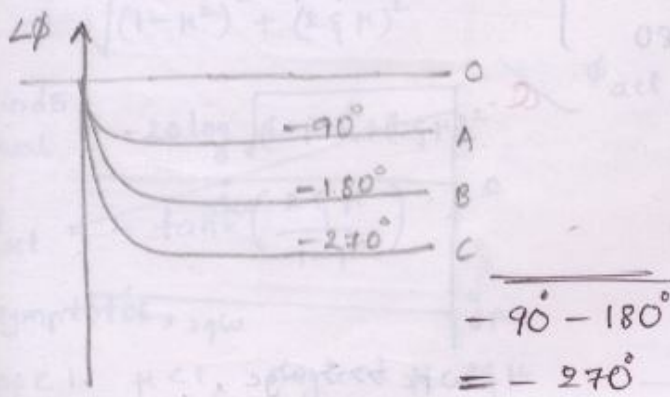 ∠φ
0
-90° A
-180° B
-270° C
-90° - 180°
= - 270°